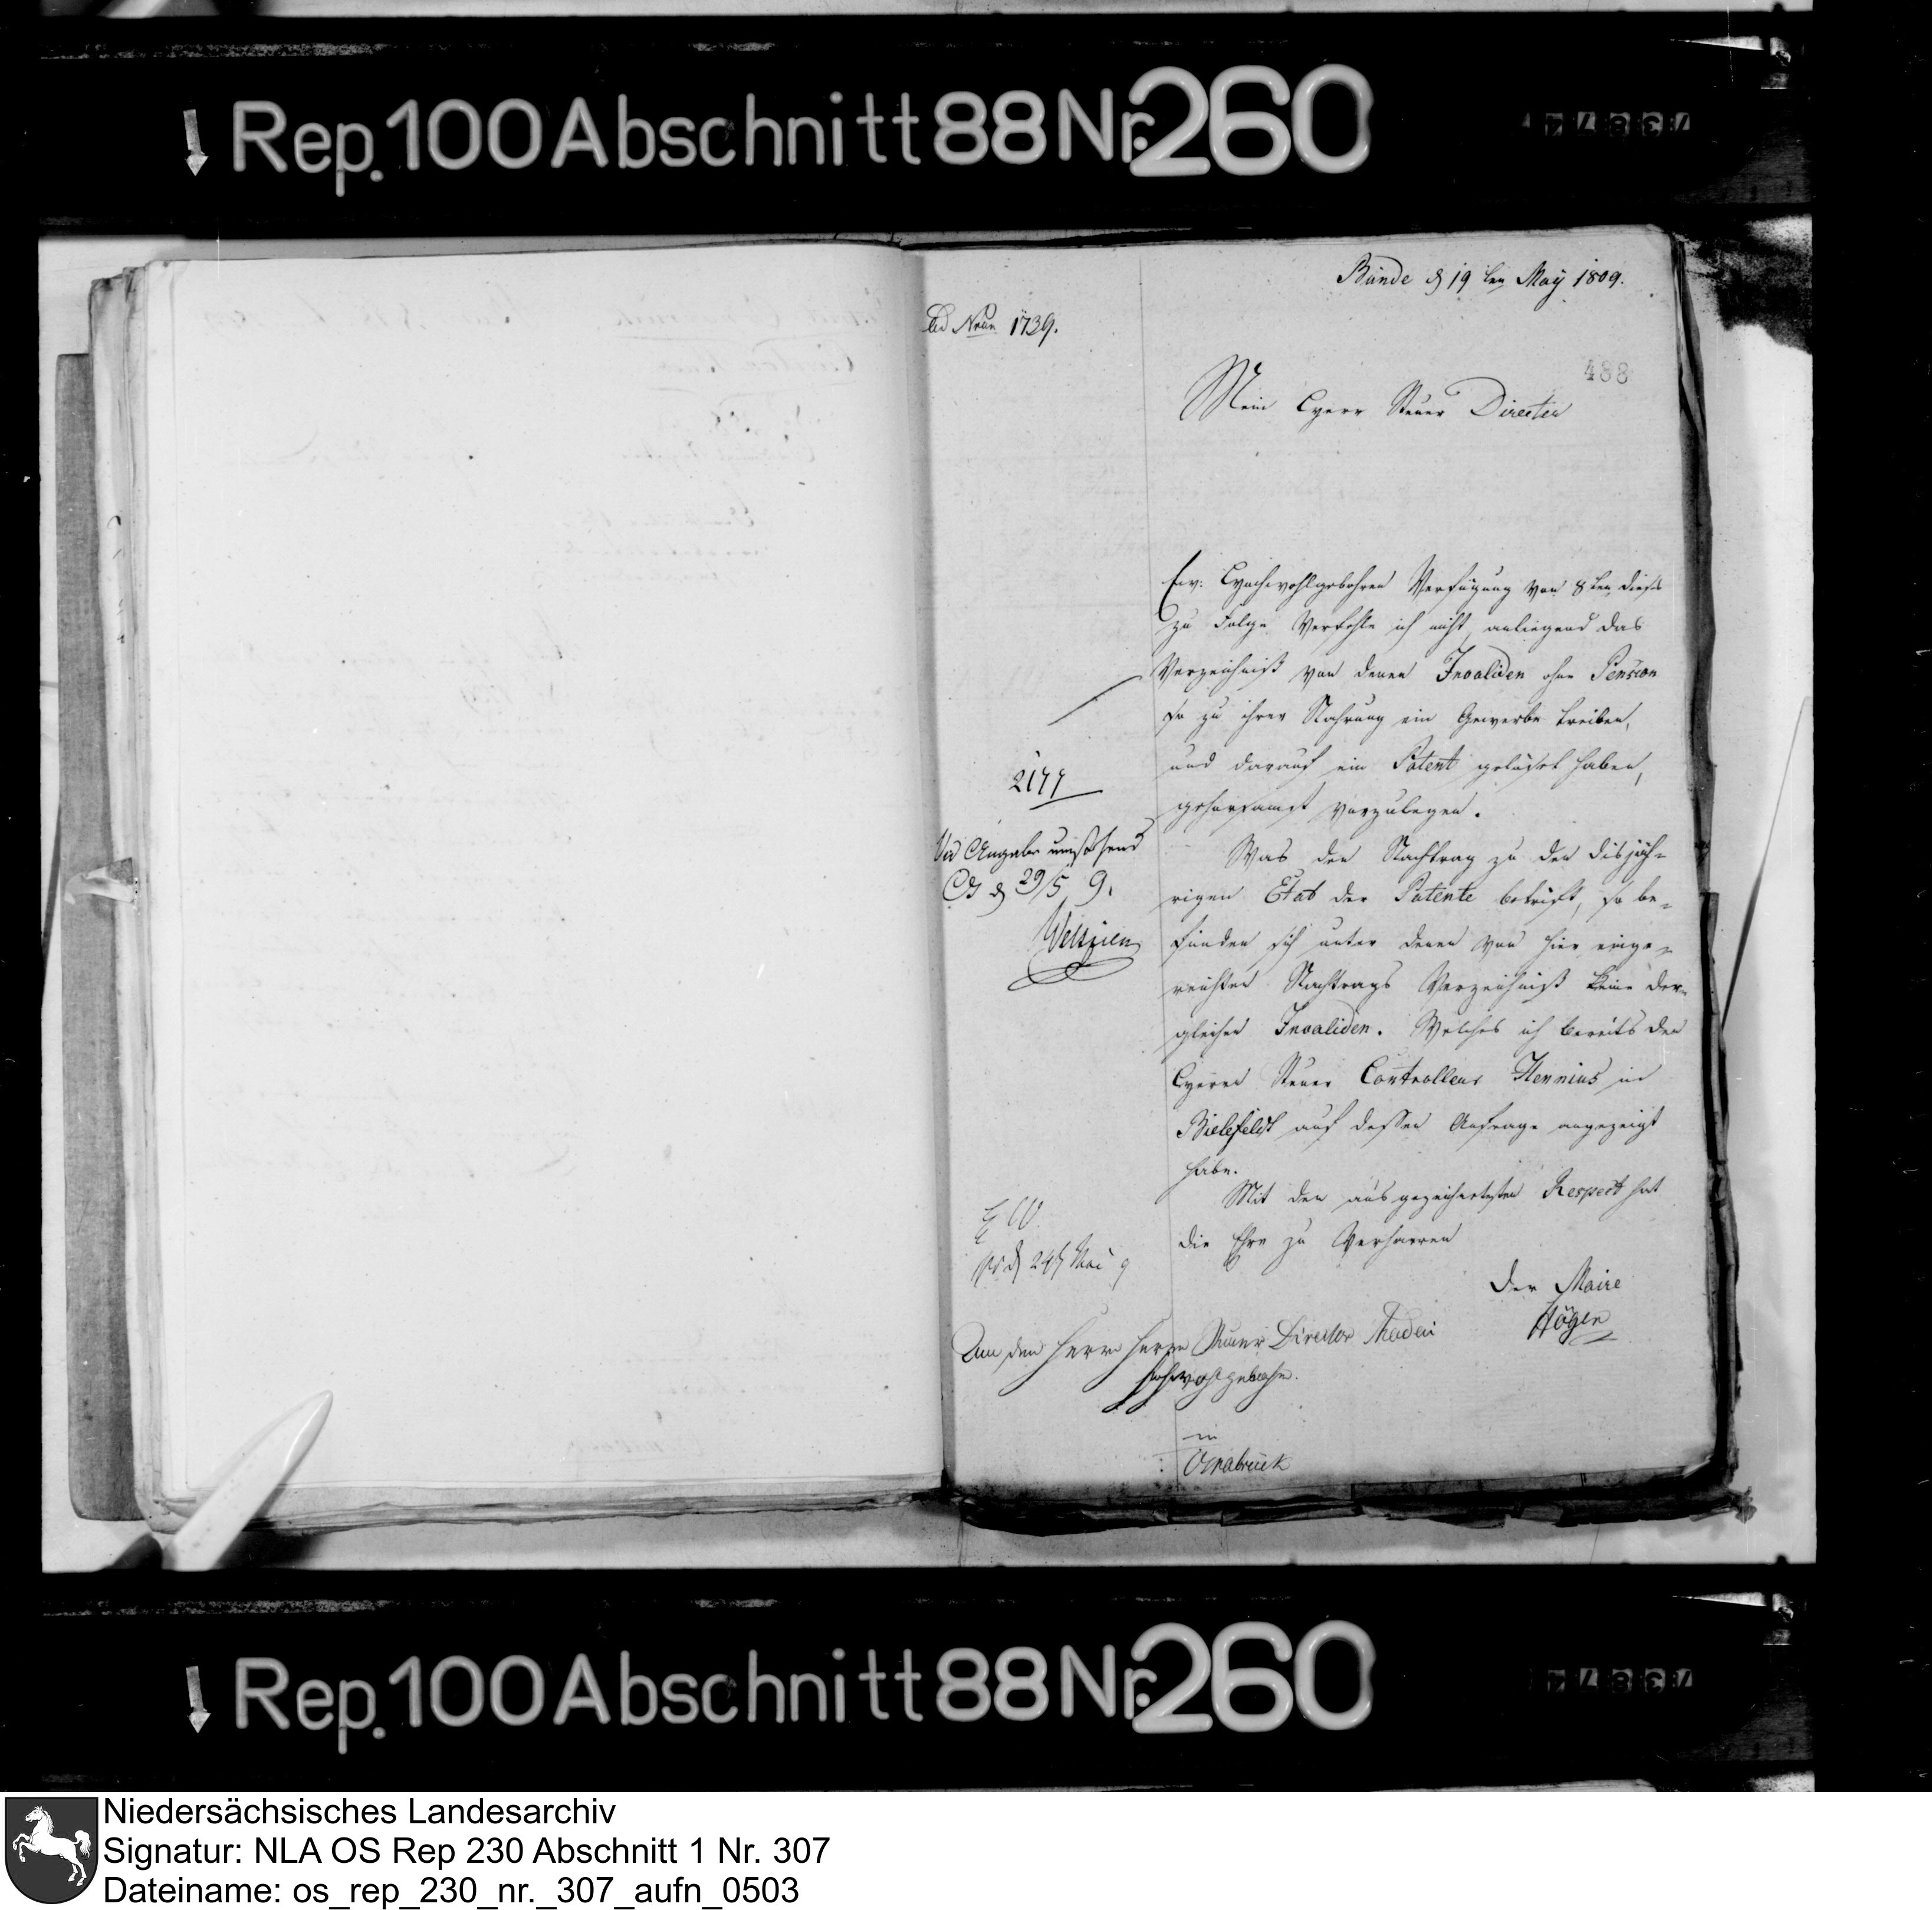 Rep. 100 Abschnitt 88 Nr. 260
73874
Bünde d 19ten May 1809.
ad Nrum 1739.
488
Mein Herr Steuer Director
Ew: Hochwohlgebohren Verfügung von 8ten dieses
zu Folge Verfehle ich nicht, anliegend das
Verzeichniß von denen Invaliden ohne Pension
so zu ihrer Nahrung ein Gewerbe treiben,
und darauf ein Patent gelöset haben,
gehorsamst vorzulegen.
Was den Nachtrag zu den disjäh=
rigen Etat der Patente betrift, so be=
finden sich unter denen von hier einge=
reichten Nachtrags Verzeichniß keine der=
gleichen Invaliden. Welches ich bereits den
Herrn Steuer Controlleur Hennius in
Bielefeldt auf dessen Anfrage angezeigt
habe.
Mit den ausgezeichnetesten Respect hat
die Ehre zu Verharren
Der Maire
Högen
2177
Angabe umstehend
29/5 9.
Weltzien
24 Mai 9
An den Herrn Herrn Steuer Director
Hochwohlgebohr.
in
Osnabrück
Rep. 100 Abschnitt 88 Nr. 260
73874
Niedersächsisches Landesarchiv
Signatur: NLA OS Rep 230 Abschnitt 1 Nr. 307
Dateiname: os_rep_230_nr._307_aufn_0503